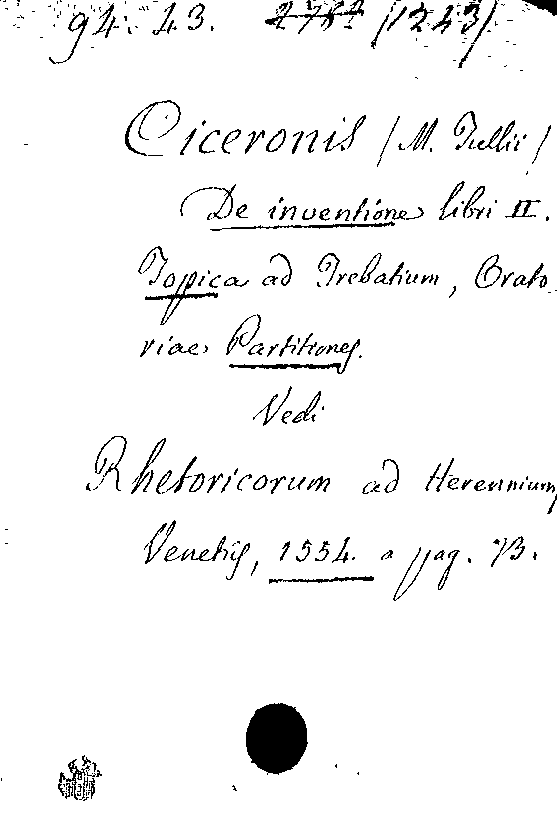 94. 43. 2782 (1243)
Ciceronis (M. Tullii)
De inventione libri II.
Topica ad Trebatium, Orato
riae Partitiones.
Vedi
Rhetoricorum ad Herennium,
Venetiis, 1554. a pag. 73.